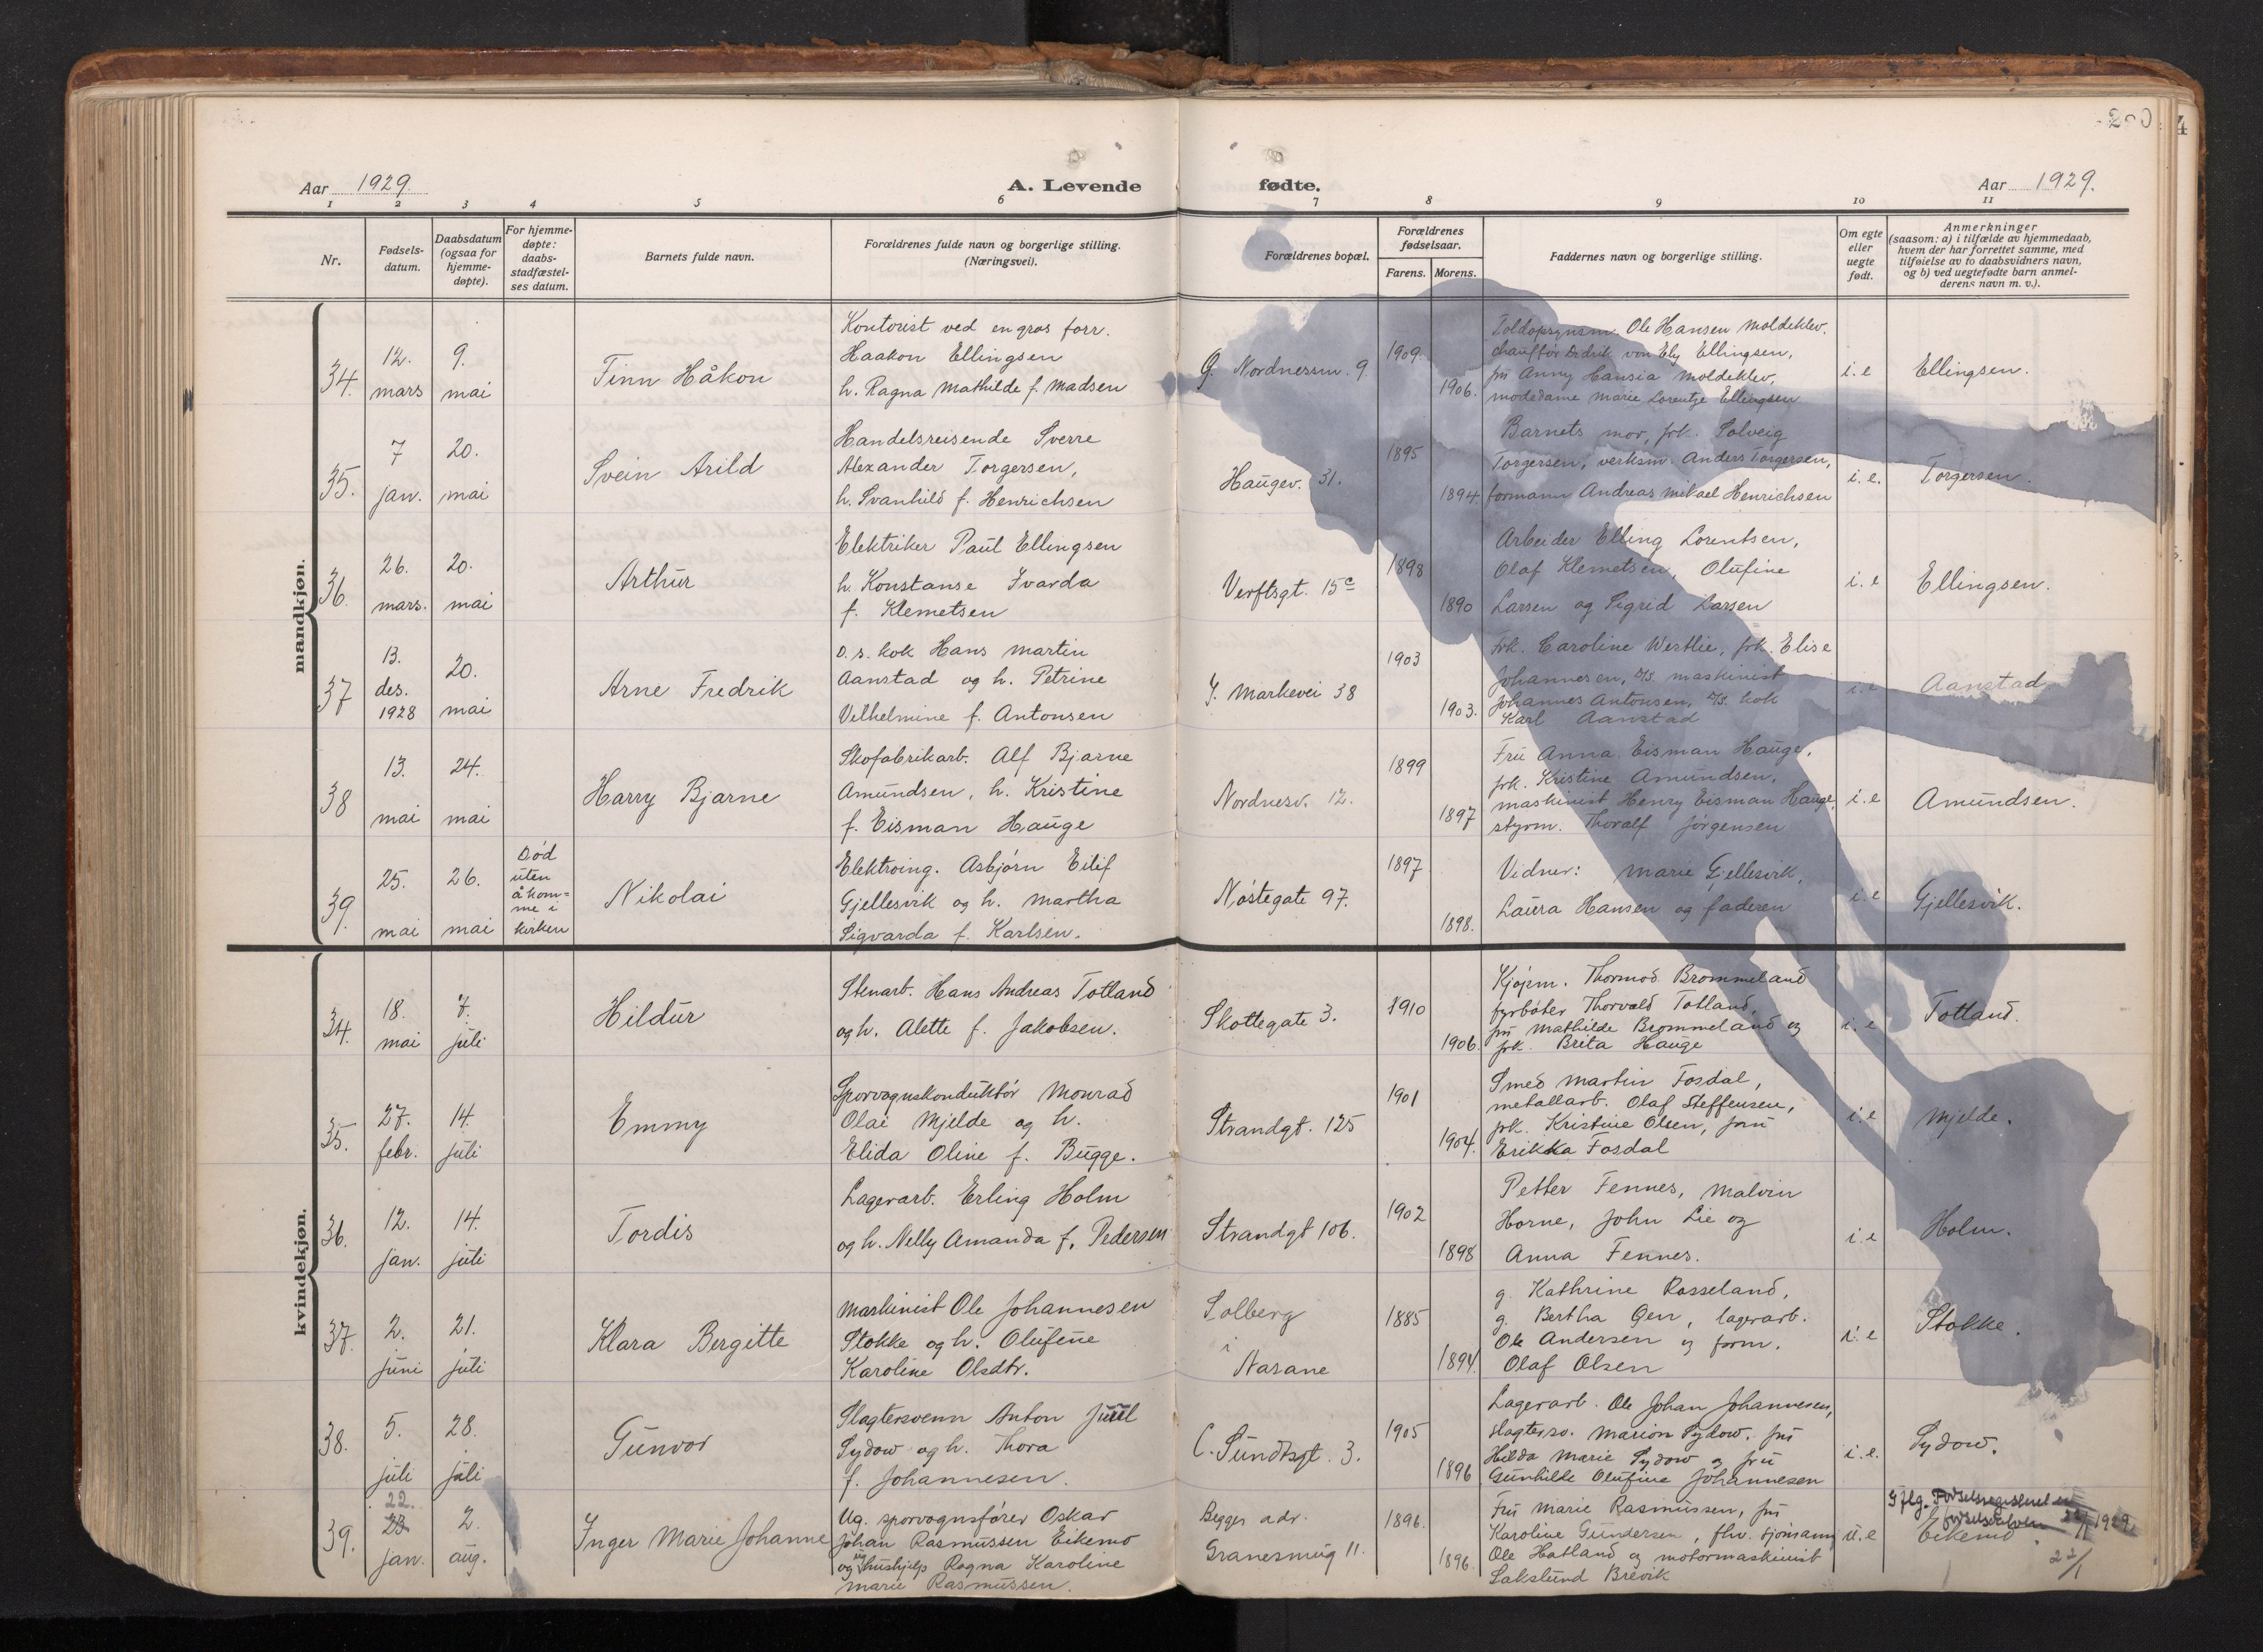 Aar 1929.
A. Levende fødte.
Aar 1929.
1 2 3 4 5 6 7 8 9 10 11
Nr.
Fødsels-
datum.
Daabsdatum
(ogsaa for
hjemme-
døpte).
For hjemme-
døpte:
daabs-
stadfæstel-
ses datum.
Barnets fulde navn.
Forældrenes fulde navn og borgerlige stilling.
(Næringsvei).
Forældrenes bopæl.
Forældrenes
fødselsaar.
Farens. Morens.
Faddernes navn og borgerlige stilling.
Om egte
eller
uegte
født.
Anmerkninger
(saasom: a) i tilfælde av hjemmedaab,
hvem der har forrettet samme, med
tilføielse av to daabsvidners navn,
og b) ved uegtefødte barn anmel-
derens navn m. v.).
mandkjøn.
34.
12.
mars
9.
mai
Finn Håkon
Kontorist ved engros forr.
Haakon Ellingsen
h. Ragna Mathilde f. Madsen
Nordnessm. 9
1909.
1906.
Toldopsynsm. Ole Hansen Moldeklev.
chauffør Didrik von Ely Ellingsen,
fru Anny Hansia Moldeklev,
modedame Marie Lorentze Ellingsen
i. e
Ellingsen.
35.
7
jan.
20.
mai
Svein Arild
Handelsreisende Sverre
Alexander Torgersen,
h. Svanhild f. Henrichsen
Haugev. 31.
1895
1894.
Barnets mor, frk. Solveig
Torgersen, verksm. Anders Torgersen,
formann Andreas Mikael Henrichsen
i. e.
Torgersen.
36.
26.
mars.
20.
mai
Arthur
Elektriker Paul Ellingsen
h. Konstanse Ivarda
f. Klemetsen
Verftsgt. 15c
1898
1890
Arbeider Elling Lorentsen,
Olaf Klemetsen, Olufine
Larsen og Sigrid Larsen
i. e
Ellingsen.
37
13.
des.
1928
20.
mai
Arne Fredrik
D. s. kok Hans Martin
Aanstad og h. Petrine
Vilhelmine f. Antonsen
Y. Markevei 38
1903
1903.
Frk. Caroline Westlie, frk. Elise
Johannesen, d/s. maskinist
Johannes Antonsen, d/s. kok
Karl Aanstad
i. e
Aanstad
38
13.
mai
24.
mai
Harry Bjarne
Skofabrikarb. Alf Bjarne
Amundsen, h. Kristine
f. Eisman Hauge
Nordnesv. 12.
1899
1897
Fru Anna Eisman Hauge,
frk. Kristine Amundsen,
maskinist Henry Eisman Hauge,
styrm. Thoralf Jørgensen
i. e
Amundsen.
39.
25.
mai
26.
mai
Død
uten
å kom=
me i
kirken
Nikolai
Elektroing. Asbjørn Eilif
Gjellesvik og h. Martha
Sigvarda f. Karlsen.
Nøstegate 97.
1897
1898.
Vidner: Marie Gjellesvik,
Laura Hansen og faderen
i. e
Gjellesvik.
kvindekjøn.
34.
18.
mai
7.
juli
Hildur
Stenarb. Hans Andreas Totland
og h. Alette f. Jakobsen.
Skottegate 3.
1910
1906.
Kjøpm. Thormod Brommeland
fyrbøter Thorvald Totland,
fru Mathilde Brommeland og
frk. Brita Hauge
i. e
Totland.
35.
27.
febr.
14.
juli
Emmy
Sporvognskonduktør Monrad
Olai Mjelde og h.
Elida Oline f. Bugge.
Strandgt. 125
1901
1904.
Smed Martin Fosdal,
metallarb. Olaf Steffensen,
frk. Kristine Olsen, fru
Erikka Fosdal
i. e
Mjelde.
36.
12.
jan.
14.
juli
Tordis
Lagerarb. Erling Holm
og h. Nelly Amanda f. Pedersen
Strandgt 106.
1902
1898
Petter Fennes, Malvin
Horne, John Lie og
Anna Fennes.
i. e
Holm.
37.
2.
juni
21.
juli
Klara Bergitte
Maskinist Ole Johannesen
Stokke og h. Olufine
Karoline Olsdtr.
Solberg
i
Narane
1885
1894.
g. Kathrine Rosseland,
g. Bertha Gen, lagerarb.
Ole Andersen og form.
Olaf Olsen
i. e
Stokke.
38.
5.
juli
28.
juli
Gunvor
Slagtersvenn Anton Juul
Sydow og h. Thora
f. Johannesen.
C. Sundtsgt. 3.
1905
1896
Lagerarb. Ole Johan Johannesen,
slagtersv. Marion Sydow, fru
Hilda Marie Sydow og fru
Gunhilde Olufine Johannesen
i. e.
Sydow.
39.
22.
23
jan.
2.
aug.
Inger Marie Johanne
Ug. sporvognsfører Oskar
Johan Rasmussen Eikemo
og ug hushjelp Ragna Karoline
Marie Rasmussen.
Begges adr.
Granesmug 11.
1896.
1896.
Fru Marie Rasmussen, fru
Karoline Gundersen, fhv. sjømann
Ole Hatland og motormaskinist
Lakslund Brevik
u. e
Iflg. Fødselsregisteret er
fødselsdatoen 22/1 1929.
Eikemo
22/1